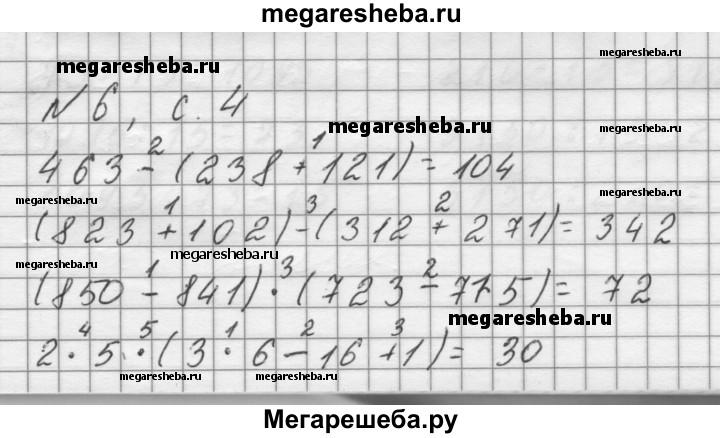 megaresheba.ru
megaresheba.ru
megaresheba.ru
№ 6, с. 4
megaresheba.ru
megaresheba.ru
463 -² (238 +¹ 121) = 104
megaresheba.ru
megaresheba.ru
(823 +¹ 102) -³ (312 +² 271) = 342
megaresheba.ru
megaresheba.ru
(850 -¹ 841) ·³ (723 -² 715) = 72
megaresheba.ru
2 ·⁴ 5 ·⁵ (3 ·¹ 6 -² 16 +³ 1) = 30
megaresheba.ru
megaresheba.ru
Мегарешеба.ру